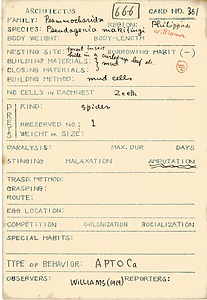 ARCHITECTUS 666 CARD NO. 361
FAMILY: Psammocharidae REGION: Philippines
SPECIES: Pseudagenia makilingi Williams
BODY WEIGHT: BODY-LENGTH
NESTING SITE: BURROWING HABIT (-)
BUILDING MATERIALS: mud
CLOSING MATERIALS:
BUILDING METHOD: mud cells
NO CELLS IN EACH NEST 2 cells
PREYS KIND: spider
PRESERVED NO.: 1
WEIGHT OR SIZE:
PARALYSIS: MAX. DUR DAYS
STINGING MALAXATION AMPUTATION
TRASP. METHOD:
GRASPING:
ROUTE:
EGG LOCATION:
COMPETITION COLONIZATION SOCIALIZATION
SPECIAL HABITS:
TYPE OF BEHAVIOR: APTOCa
OBSERVERS: WILLIAMS (1919) REPORTERS: